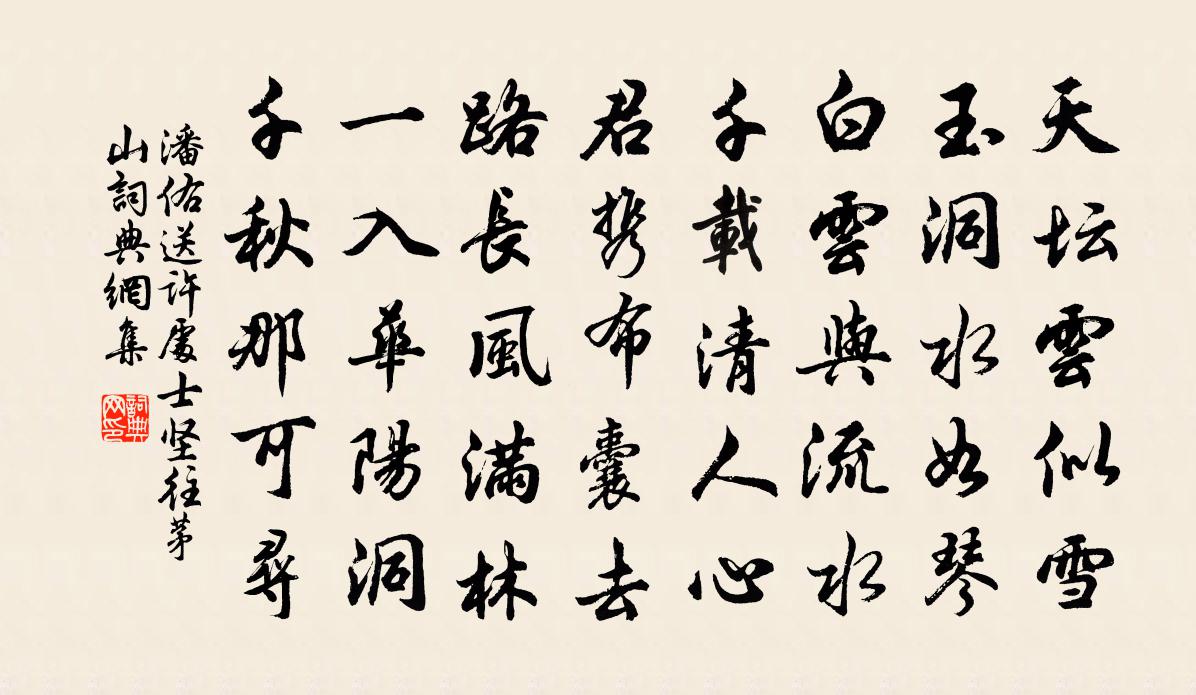 天坛雲似雪
玉洞水如琴
白雲與流水
千載清人心
君携布囊去
路長風滿林
一入華陽洞
千秋那可尋
潘佑送許處士坚往茅
山詞典網集
詞典网印